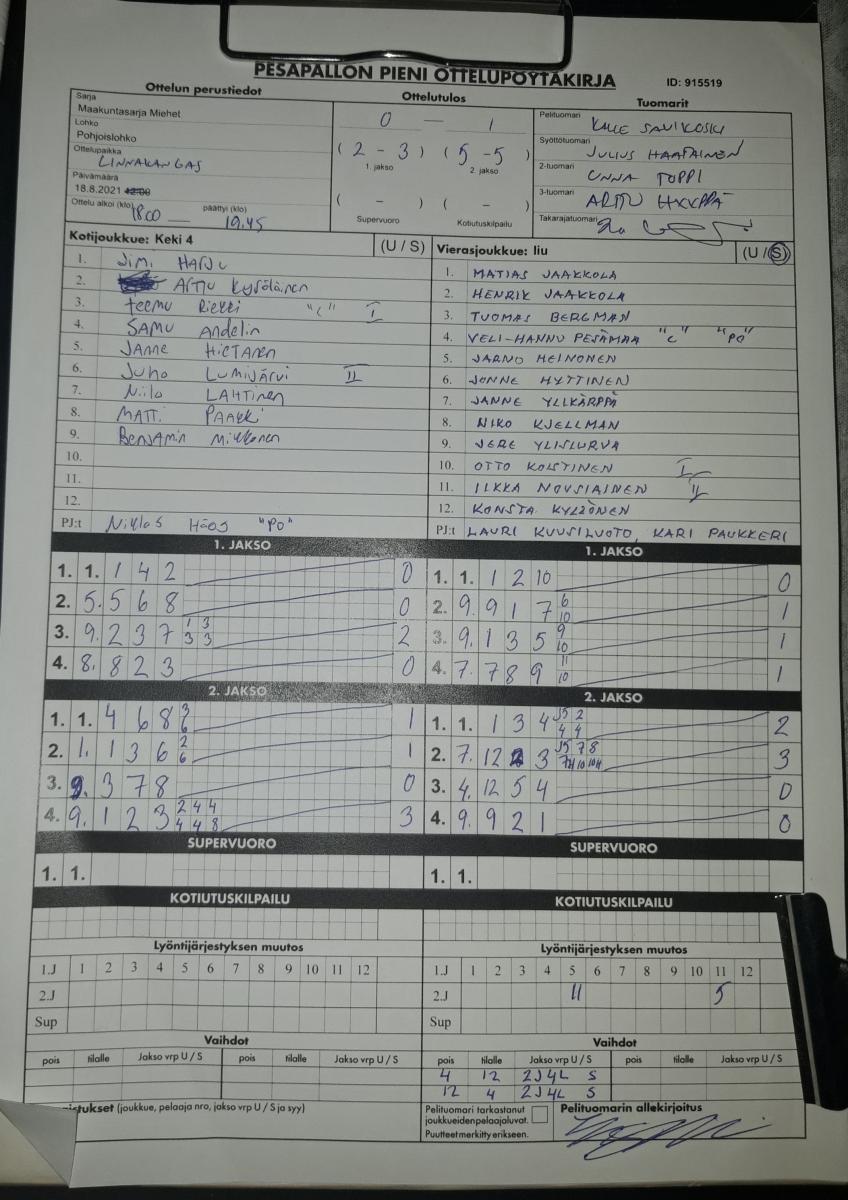 PESÄPALLON PIENI OTTELUPÖYTÄKIRJA
ID: 915519
Ottelun perustiedot
Sarja
Maakuntasarja Miehet
Lohko
Pohjoislohko
Ottelupaikka
LINNAKANGAS
Päivämäärä
18.8.2021 12:00
Ottelu alkoi (klo) 1800 — päättyi (klo) 19.45
Ottelutulos
0 — 1
(2 - 3) (5 - 5)
1. jakso 2. jakso
( - ) ( - )
Supervuoro Kotiutuskilpailu
Tuomarit
Pelituomari KALLE SAVIKOSKI
Syöttötuomari JULIUS HAATAINEN
2-tuomari UNNA TOPPI
3-tuomari ARTTU
Takarajatuomari
Kotijoukkue: Keki 4 (U / S)
1. Jimi HARJU
2. Arttu
3. Teemu "C" I
4. SAMU Andelin
5. JANNE HIETANEN
6. Juho LUMIJÄRVI II
7. Niilo LAHTINEN
8. MATTI
9. BENJAMIN Mikkonen
10.
11.
12.
PJ:t Niklas "PO"
Vierasjoukkue: Iiu (U / S)
1. MATIAS JAAKKOLA
2. HENRIK JAAKKOLA
3. TUOMAS BERGMAN
4. VELI-HANNU PESÄMAA "C" "PO"
5. JARNO HEINONEN
6. JONNE HYTTINEN
7. JANNE YLIKÄRPPÄ
8. NIKO KJELLMAN
9. JERE YLISIURVA
10. OTTO KOISTINEN I
11. ILKKA NOUSIAINEN II
12. KONSTA KYLLÖNEN
PJ:t LAURI KUUSILUOTO, KARI PAUKKERI
1. JAKSO
1. 1. 1 4 2 0
2. 5. 5 6 8 0
3. 9. 2 3 7 1 3 3 3 2
4. 8. 8 2 3 0
2. JAKSO
1. 1. 4 6 8 3 6 1
2. 1. 1 3 6 2 6 1
3. 9. 3 7 8 0
4. 9. 1 2 3 2 4 4 4 4 8 3
SUPERVUORO
1. 1.
KOTIUTUSKILPAILU
Lyöntijärjestyksen muutos
1.J 1 2 3 4 5 6 7 8 9 10 11 12
2.J
Sup
Vaihdot
pois tilalle Jakso vrp U / S pois tilalle Jakso vrp U / S
1. JAKSO
1. 1. 1 2 10 0
2. 9. 9 1 7 6 10 1
3. 9. 1 3 5 9 10 1
4. 7. 7 8 9 11 10 1
2. JAKSO
1. 1. 1 3 4 J5 2 4 4 2
2. 7. 12 3 J5 7 8 3
3. 4. 12 5 4 0
4. 9. 9 2 1 0
SUPERVUORO
1. 1.
KOTIUTUSKILPAILU
Lyöntijärjestyksen muutos
1.J 1 2 3 4 5 6 7 8 9 10 11 12
2.J 11 5
Sup
Vaihdot
pois tilalle Jakso vrp U / S pois tilalle Jakso vrp U / S
4 12 2J4L S
12 4 2J4L S
(joukkue, pelaaja nro, jakso vrp U / S ja syy)
Pelituomari tarkastanut
joukkueidenpelaajaluvat.
Puutteet merkitty erikseen.
Pelituomarin allekirjoitus